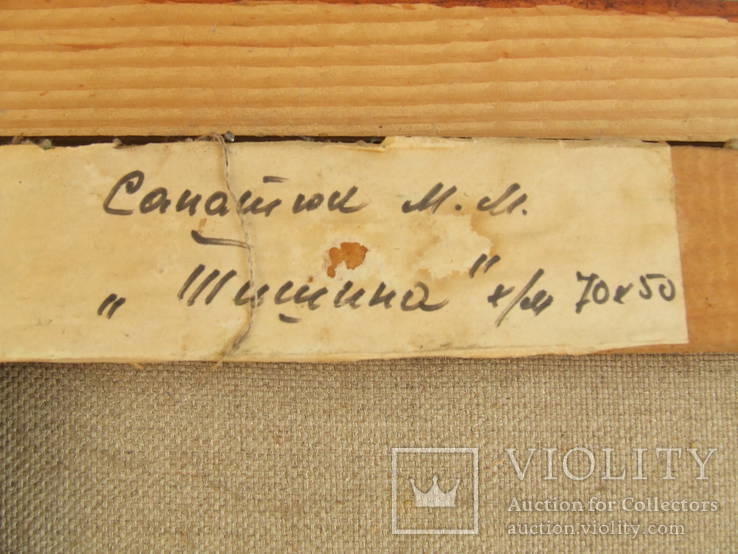 Сапатюк М.М.
„Тишина" х/м 70х50
VIOLITY
Auction for Collectors
auction.violity.com